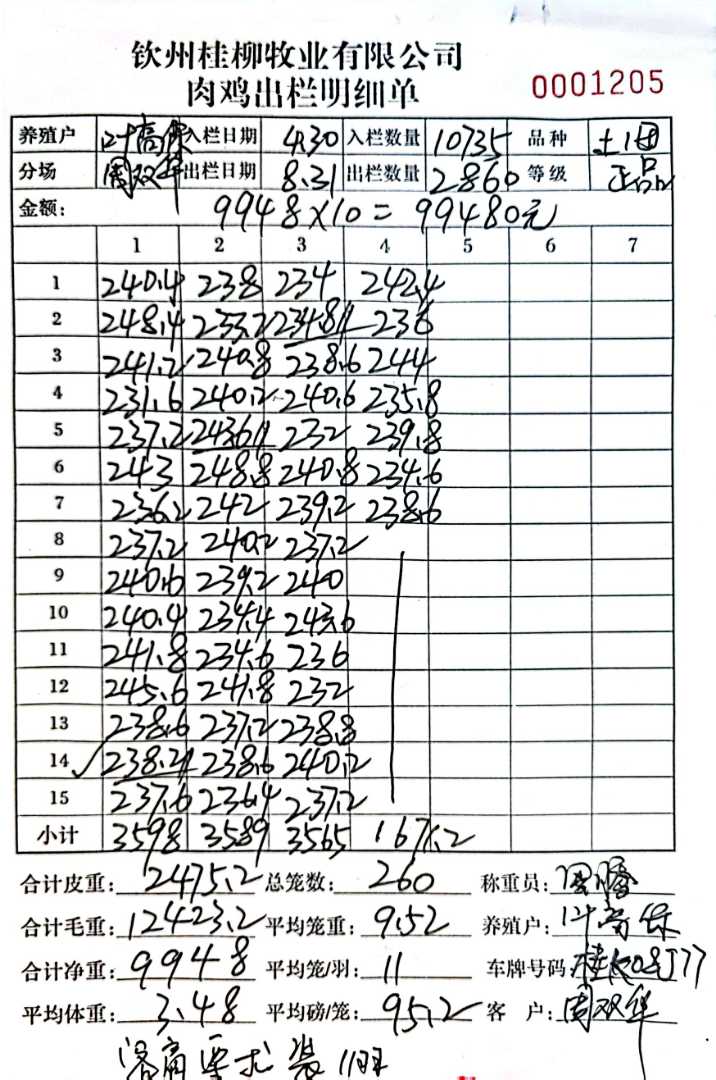 钦州桂柳牧业有限公司
肉鸡出栏明细单 0001205
养殖户 叶高保 入栏日期 4.30 入栏数量 10735 品种 土1团
分场 周双华 出栏日期 8.31 出栏数量 2860 等级 正品
金额: 9948×10=99480元
1 2 3 4 5 6 7
1 240.4 238 234 242.4
2 248.4 233.2 234.8 236
3 241.2 240.8 238.6 244
4 231.6 240.2 240.6 235.8
5 237.2 243.6 232 239.8
6 243 248.8 240.8 234.6
7 236.2 242 239.2 238.6
8 237.2 240.2 237.2
9 240.6 239.2 240
10 240.4 234.4 243.6
11 241.8 234.6 236
12 245.6 241.8 232
13 238.6 237.2 238.8
14 238.2 238.6 240.2
15 237.6 236.4 237.2
小计 3598 3589 3565 1671.2
合计皮重: 2475.2 总笼数: 260 称重员:
合计毛重: 12423.2 平均笼重: 9.52 养殖户: 叶高保
合计净重: 9948 平均笼/羽: 11 车牌号码:
平均体重: 3.48 平均磅/笼: 95.2 客 户: 周双华
客商要求装11羽